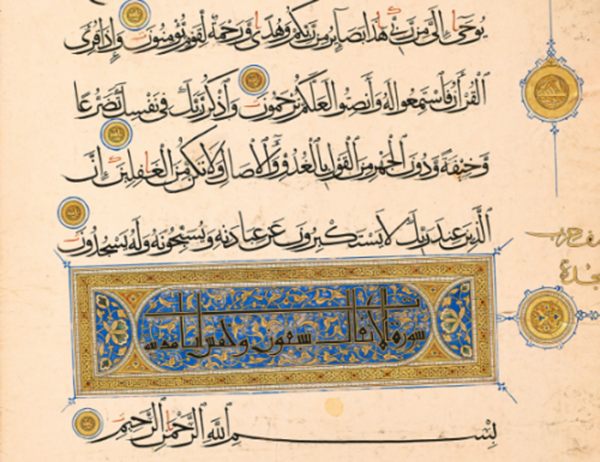 يُوحَىٰ إِلَيَّ مِنْ رَبِّي هَٰذَا بَصَائِرُ مِنْ رَبِّكُمْ وَهُدًى وَرَحْمَةٌ لِقَوْمٍ يُؤْمِنُونَ وَإِذَا قُرِئَ
الْقُرْآنُ فَاسْتَمِعُوا لَهُ وَأَنْصِتُوا لَعَلَّكُمْ تُرْحَمُونَ وَاذْكُرْ رَبَّكَ فِي نَفْسِكَ تَضَرُّعًا
وَخِيفَةً وَدُونَ الْجَهْرِ مِنَ الْقَوْلِ بِالْغُدُوِّ وَالْآصَالِ وَلَا تَكُنْ مِنَ الْغَافِلِينَ إِنَّ
الَّذِينَ عِنْدَ رَبِّكَ لَا يَسْتَكْبِرُونَ عَنْ عِبَادَتِهِ وَيُسَبِّحُونَهُ وَلَهُ يَسْجُدُونَ
سجدة
سورة الانفال سبعون وخمس ايات مدنيه
بِسْمِ اللَّهِ الرَّحْمَٰنِ الرَّحِيمِ